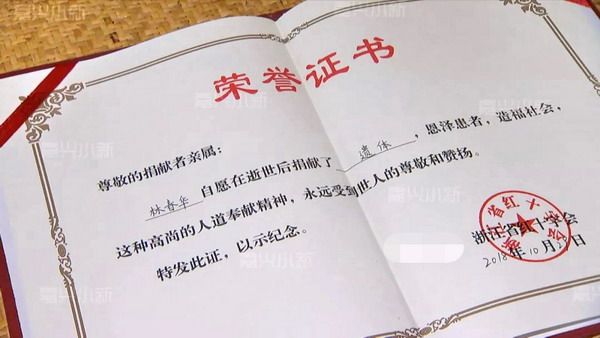 荣誉证书
尊敬的捐献者亲属:
林春华 自愿在逝世后捐献了 遗体 ,恩泽患者,造福社会,
这种高尚的人道奉献精神,永远受到世人的尊敬和赞扬。
特发此证,以示纪念。
浙江省红十字会
2018年10月 日
嘉兴小新